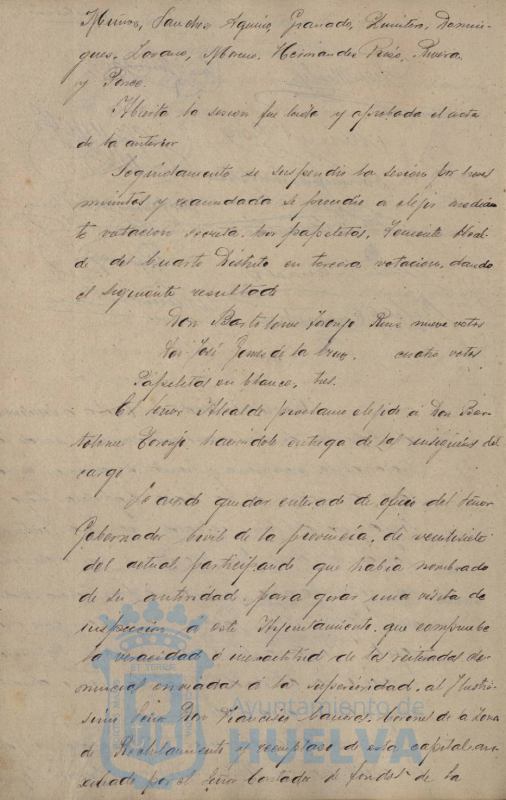 Muñoz, Sanchez Aquino, Granado, Quintero, Domin-
guez, Lozano, Moreno, Hernandez Pinzó, Rivera
y Ponce.
Abierta la sesion fue leida y aprobada el acta
de la anterior
Seguidamente se suspendio la sesion por breves
minutos y reanudada se procedio a elejir median
te votacion secreta por papeletas, Teniente Alcal-
de del Cuarto Distrito en tercera votacion, dando
el siguiente resultado
Don Bartolome Toronjo Ruiz nueve votos
Don José Gomez de la Cruz, cuatro votos
Papeletas en blanco, tres.
El señor Alcalde proclamo elejido á Don Bar-
tolome Toronjo, haciendole entrega de las insignias del
cargo
Se acordo quedar enterado de oficio del Señor
Gobernador Civil de la provincia, de veintisiete
del actual participando que habia nombrado
de su autoridad para girar una visita de
inspeccion á este Ayuntamiento, que compruebe
la veracidad o inexactitud de las reiteradas de-
nuncias enviadas á la superioridad, al Ilustri-
simo Señor Don Francisco Coronel de la Zona
de Reclutamiento y reemplazo de esta capital au-
xiliado por el Señor Contador de fondos de la
Ayuntamiento de
HUELVA